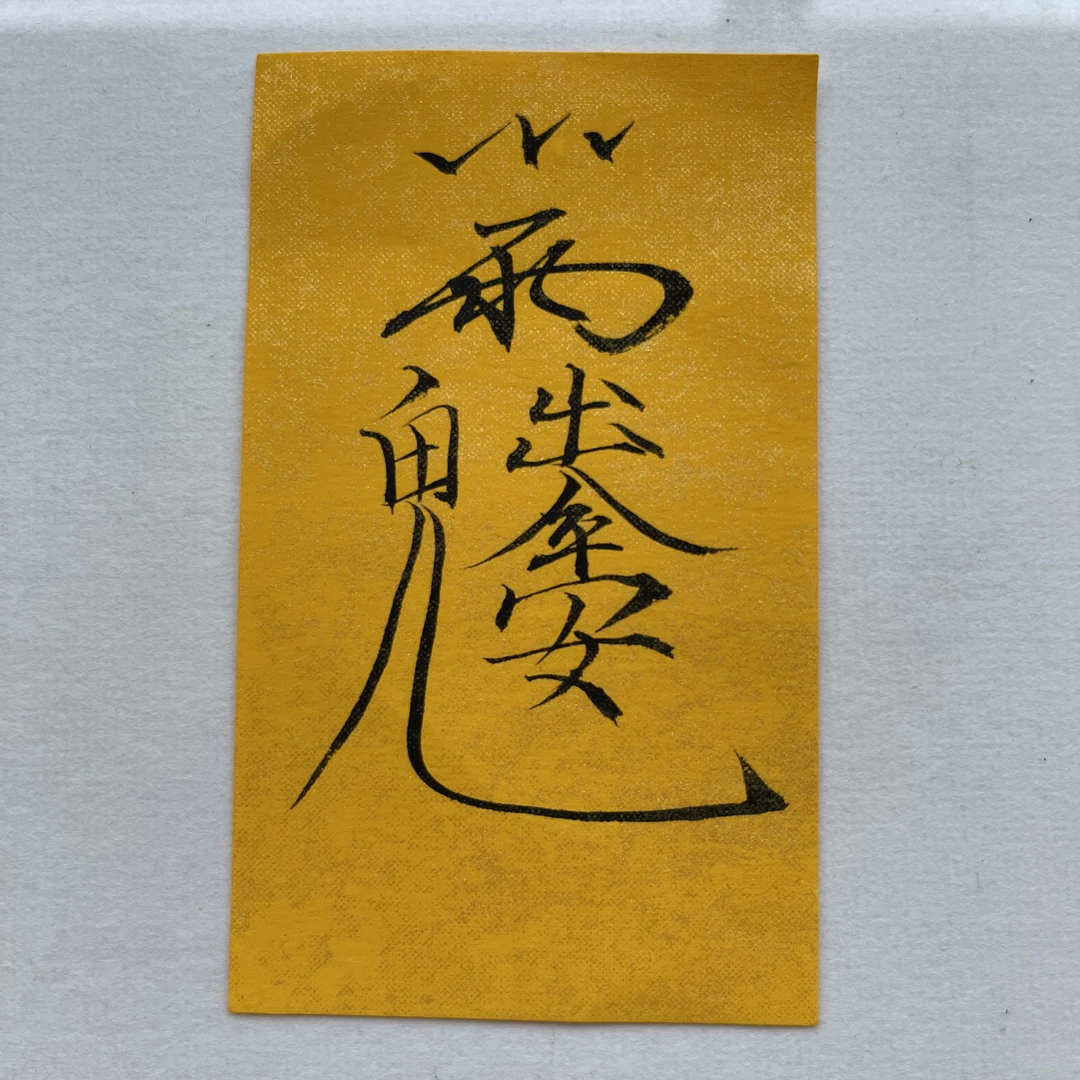 雨
鬼
出入平安